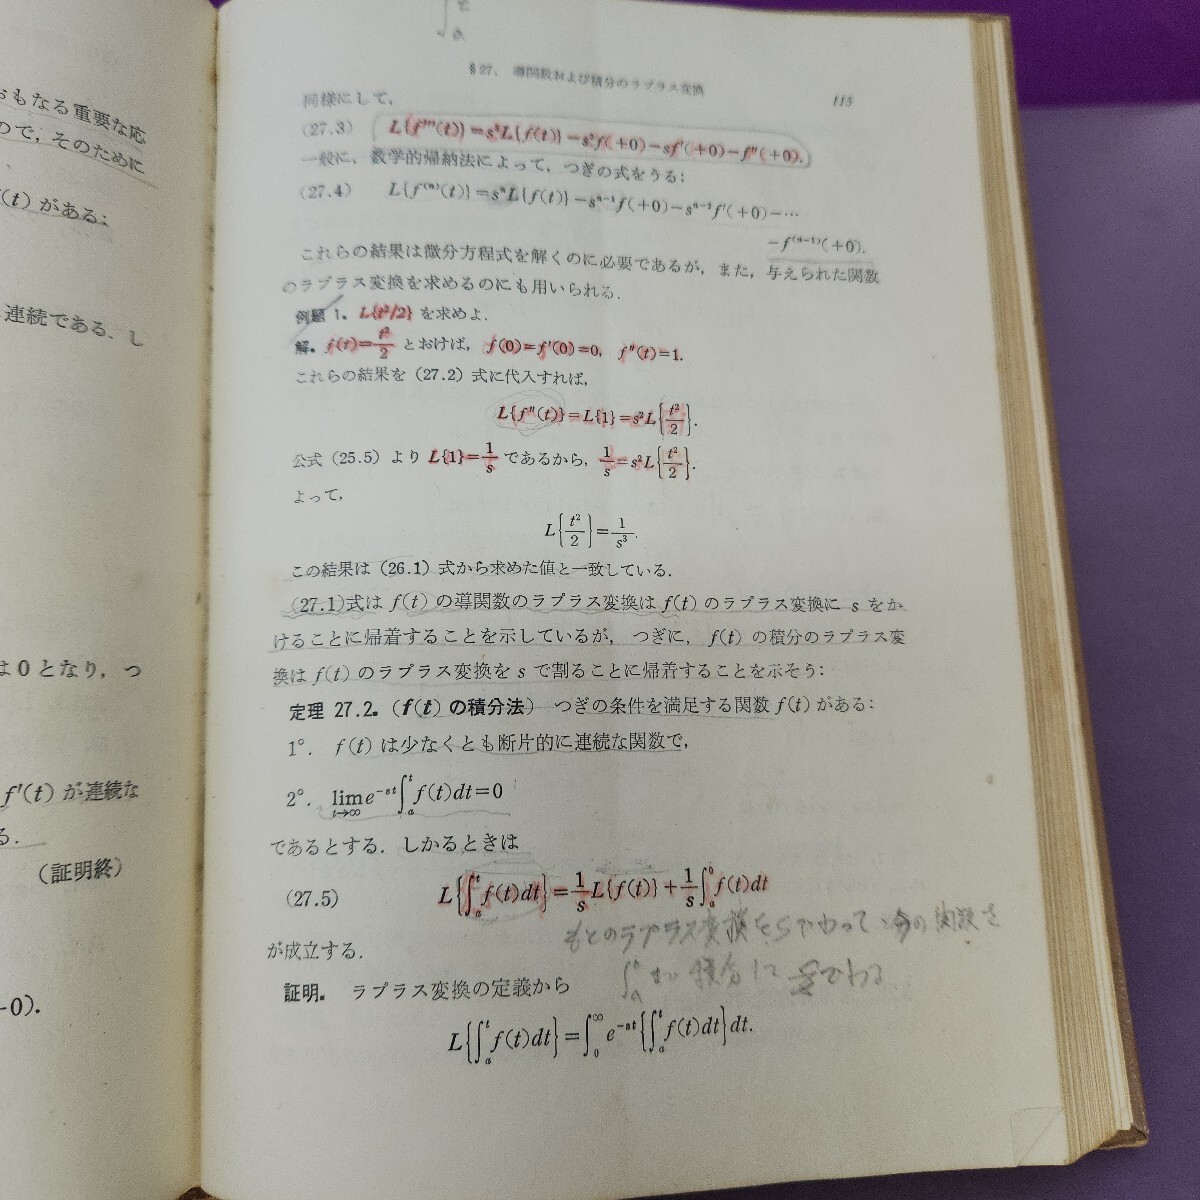 おもなる重要な応
ので, そのために
(t) がある:
連続である. し
は0となり, つ
f′(t) が連続な
る.
(証明終)
-0).
∫ₐᵗ
§27. 導関数および積分のラプラス変換 115
同様にして,
(27.3) L{f‴(t)}=s³L{f(t)}−s²f(+0)−sf′(+0)−f″(+0).
一般に, 数学的帰納法によって, つぎの式をうる:
(27.4) L{f⁽ⁿ⁾(t)}=sⁿL{f(t)}−sⁿ⁻¹f(+0)−sⁿ⁻²f′(+0)−…
−f⁽ⁿ⁻¹⁾(+0).
これらの結果は微分方程式を解くのに必要であるが, また, 与えられた関数
のラプラス変換を求めるのにも用いられる.
例題 1. L{t²/2} を求めよ.
解. f(t)=t²/2 とおけば, f(0)=f′(0)=0, f″(t)=1.
これらの結果を (27.2) 式に代入すれば,
L{f″(t)}=L{1}=s²L{t²/2}.
公式 (25.5) より L{1}=1/s であるから, 1/s=s²L{t²/2}.
よって,
L{t²/2}=1/s³.
この結果は (26.1) 式から求めた値と一致している.
(27.1)式は f(t) の導関数のラプラス変換は f(t) のラプラス変換に s をか
けることに帰着することを示しているが, つぎに, f(t) の積分のラプラス変
換は f(t) のラプラス変換を s で割ることに帰着することを示そう:
定理 27.2. (f(t) の積分法) つぎの条件を満足する関数 f(t) がある:
1°. f(t) は少なくとも断片的に連続な関数で,
2°. lim_{t→∞} e⁻ˢᵗ∫ₐᵗ f(t)dt=0
であるとする. しかるときは
(27.5) L{∫ₐᵗ f(t)dt}=1/s L{f(t)}+1/s ∫ₐ⁰ f(t)dt
もとのラプラス変換をsでわって、の関数を
が成立する.
∫ₐ 積分に でわる
証明. ラプラス変換の定義から
L{∫ₐᵗ f(t)dt}=∫₀^∞ e⁻ˢᵗ{∫ₐᵗ f(t)dt}dt.